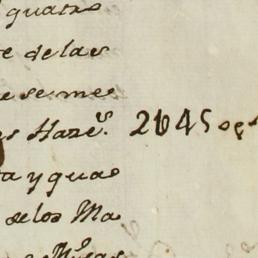 y quatro
e de las
e se me
es Haze.ˢ 2045 og
ta y qua
de los Ma